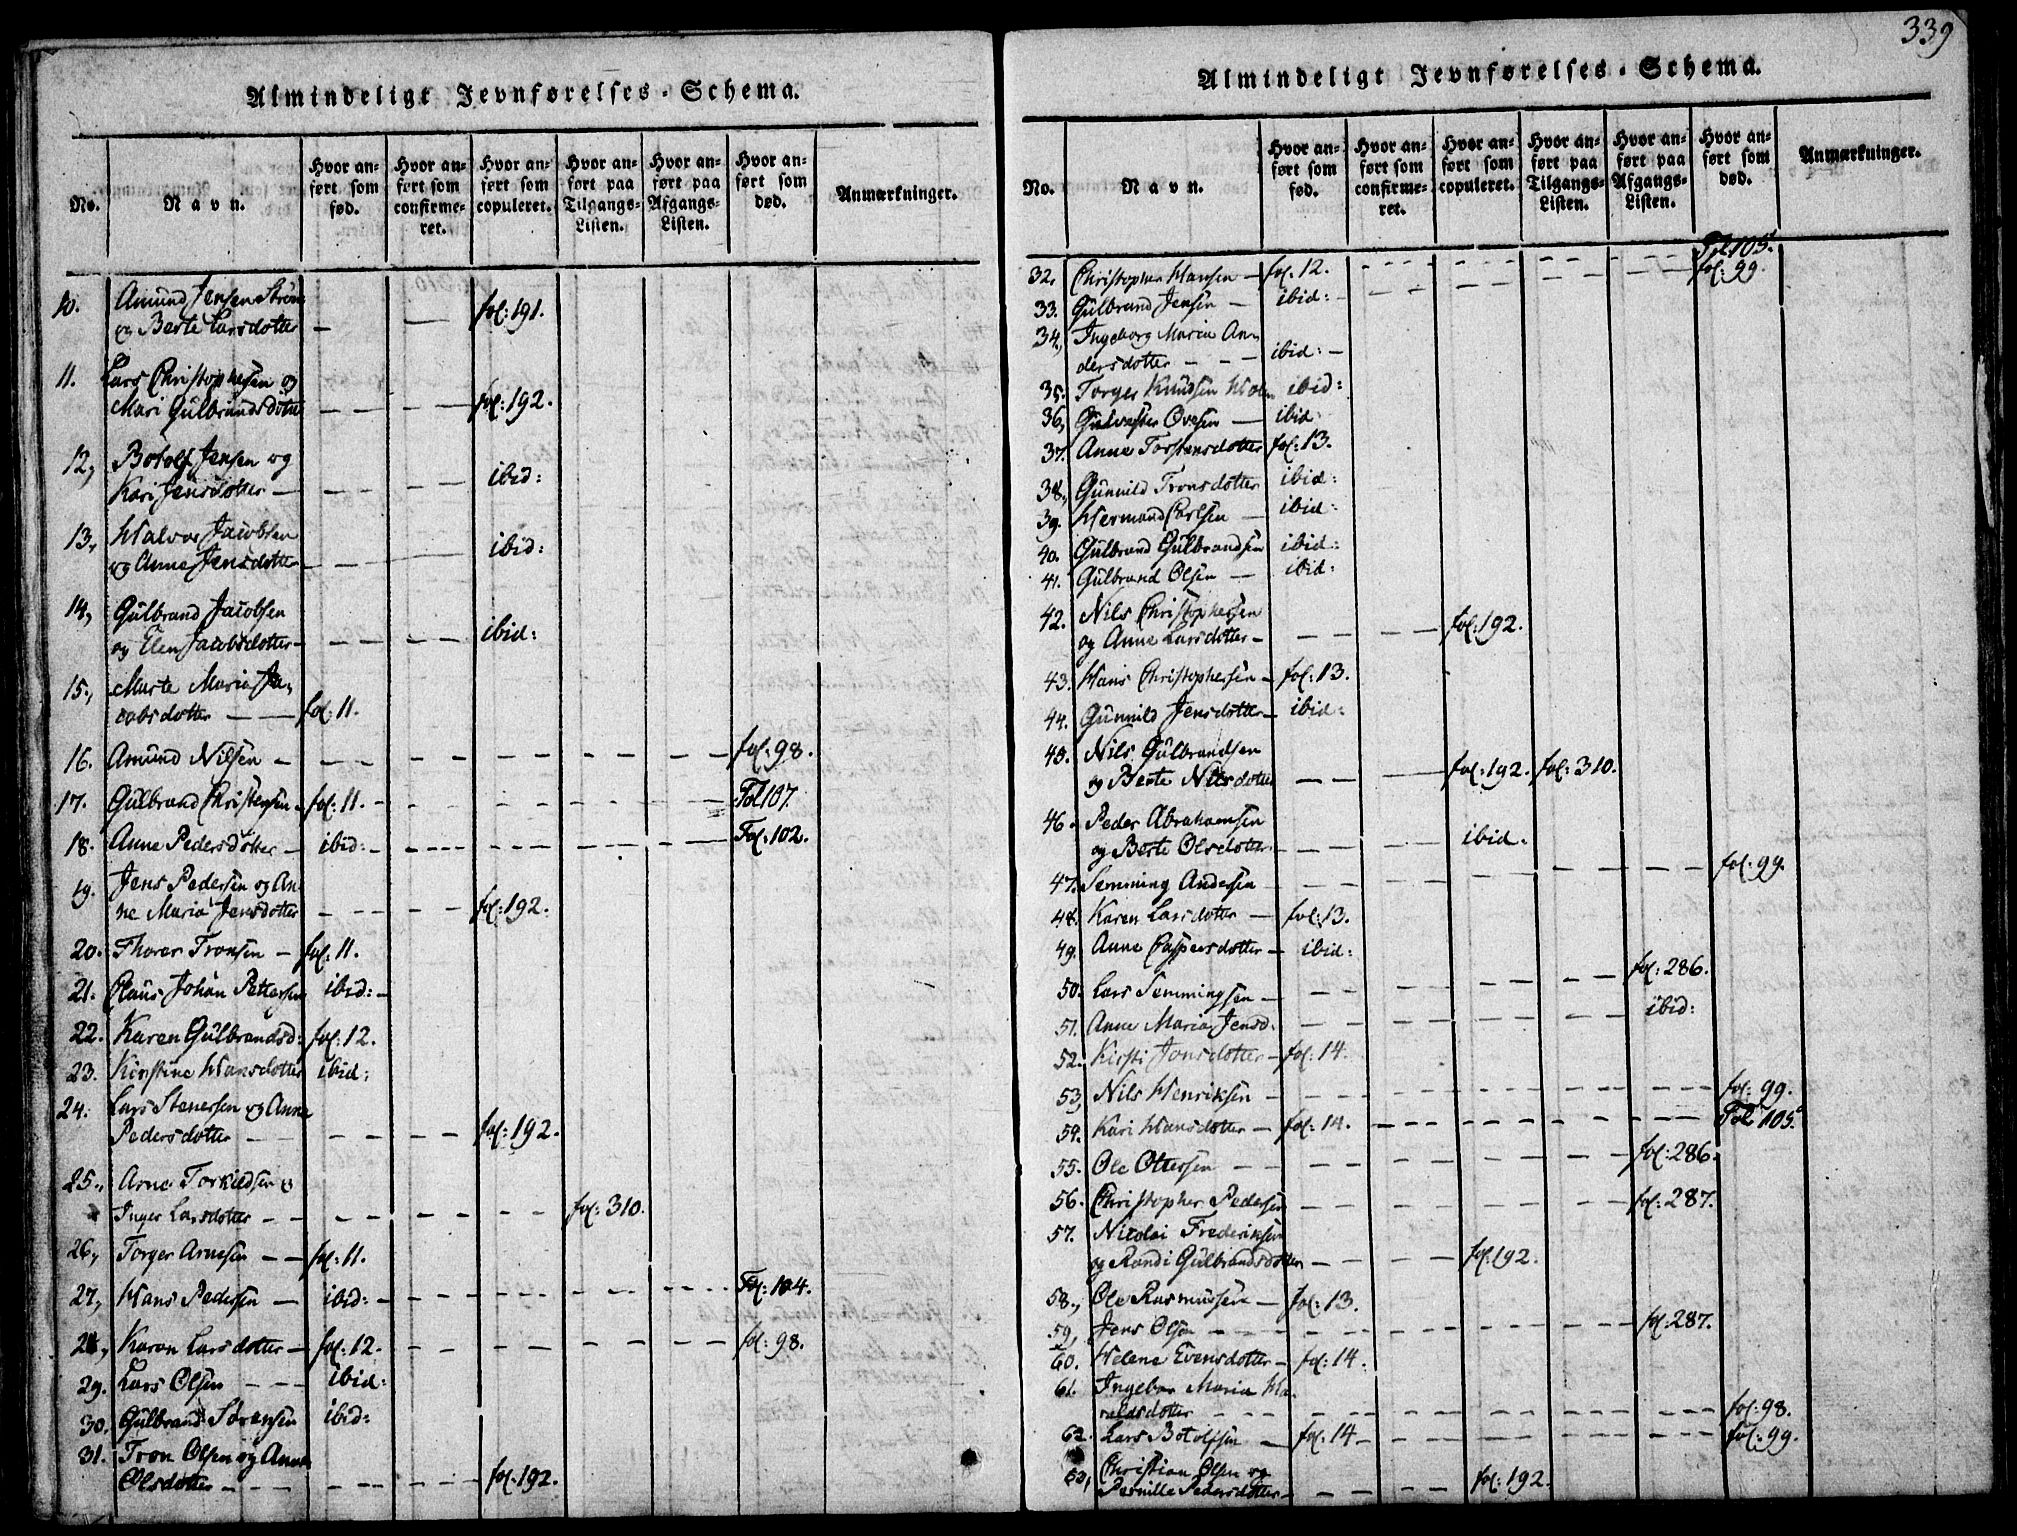 339
Almindeligt Jevnførelses-Schema.
No.
Navn.
Hvor anført som fød.
Hvor anført som confirmeret.
Hvor anført som copuleret.
Hvor anført paa Tilgangs-Listen.
Hvor anført paa Afgangs-Listen.
Hvor anført som død.
Anmærkninger.
10. Amund Jensen Strøm
og Berte Larsdotter — — fol: 191.
11. Lars Christophersen og
Mari Gulbrandsdotter — — — fol: 192.
12, Botolf Jensen og
Kari Jensdotter — — — — ibid:
13, Halvor Jacobsen
og Anne Jensdotter — — ibid:
14, Gulbrand Jacobsen
og Elen Jacobsdotter — — — — ibid:
15, Marte Maria Ja-
cobsdotter — — fol: 11.
16. Amund Nilsen — — — — — — fol: 98.
17. Gulbrand Christensen — fol: 11. — — — — — Fol 107.
18. Anne Pedersdotter — ibid: — — — — — Fol: 102.
19. Jens Pedersen og An-
ne Maria Jensdotter — — — fol: 192.
20. Thorer Tronsen — fol: 11.
21. Claus Johan Pettersen ibid: —
22. Karen Gulbrandsd: fol: 12.
23. Kirstine Hansdotter ibid:
24. Lars Stenersen og Anne
Pedersdotter — — — — fol: 192.
25., Arne Torkildsen og
Inger Larsdotter — — — — — — fol: 310.
26, Torger Arnesen — — fol: 11.
27, Hans Pedersen — ibid: — — — — — Fol: 104.
28, Karen Larsdotter — fol: 12. — — — — — fol: 98.
29. Lars Olsen — — — ibid:
30. Gulbrand Sørensen ibid:
31. Tron Olsen og Anne
Olsdotter — — — — — fol: 192.
Almindeligt Jevnførelses-Schema.
No.
Navn.
Hvor anført som fød.
Hvor anført som confirmeret.
Hvor anført som copuleret.
Hvor anført paa Tilgangs-Listen.
Hvor anført paa Afgangs-Listen.
Hvor anført som død.
Anmærkninger.
32, Christopher Hansen — fol: 12. — — — — — Fol 105.
33. Gulbrand Jensen — ibid: — — — — — fol: 99.
34, Ingeborg Maria An-
dersdotter — — — ibid: —
35. Torger Knudsen ibid:
36, Ovesen — ibid
37. Anne Torstensdotter fol: 13.
38, Gunnild Tronsdotter ibid:
39. Herman Carlsen — ibid:
40. Gulbrand Gulbrandsen ibid:
41. Gulbrand Olsen — ibid:
42. Nils Christophersen
og Anne Larsdotter — — — — fol: 192.
43. Hans Christophersen — fol: 13.
44. Gunnild Jensdotter — ibid:
45. Nils Gulbrandsen
og Berte Nilsdotter — — — fol: 192. fol: 310.
46. Peder Abrahamsen
og Berte Olsdotter — — — — ibid.
47. Semming Andersen — — — — — — fol: 99.
48. Karen Larsdotter — fol: 13.
49. Anne Caspersdotter — ibid:
50. Lars Semmingsen — — — — — fol: 286.
51. Anne Maria Jensd: — — — — — ibid:
52. Kirsti Jonsdotter — fol: 14.
53, Nils Henriksen — — — — — — fol: 99.
54. Kari Hansdotter — fol: 14. — — — — — Fol 105.
55. Ole Ottersen — — — — — — fol: 286.
56. Christopher Pedersen — — — — — fol: 287.
57. Nicolai Frederiksen
og Randi Gulbrandsdotter — — — — fol: 192.
58, Ole Rasmussen — fol: 13.
59, Jens Olsen — — — — — — fol: 287.
60. Helene Evensdotter — fol: 14.
61. Ingebor Maria Ha-
raldsdotter — — — — — — — fol: 98.
62. Lars Botolfsen — fol: 14 — — — — — fol: 99.
63, Christian Olsen og
Pernille Pedersdotter — — — — fol: 192.